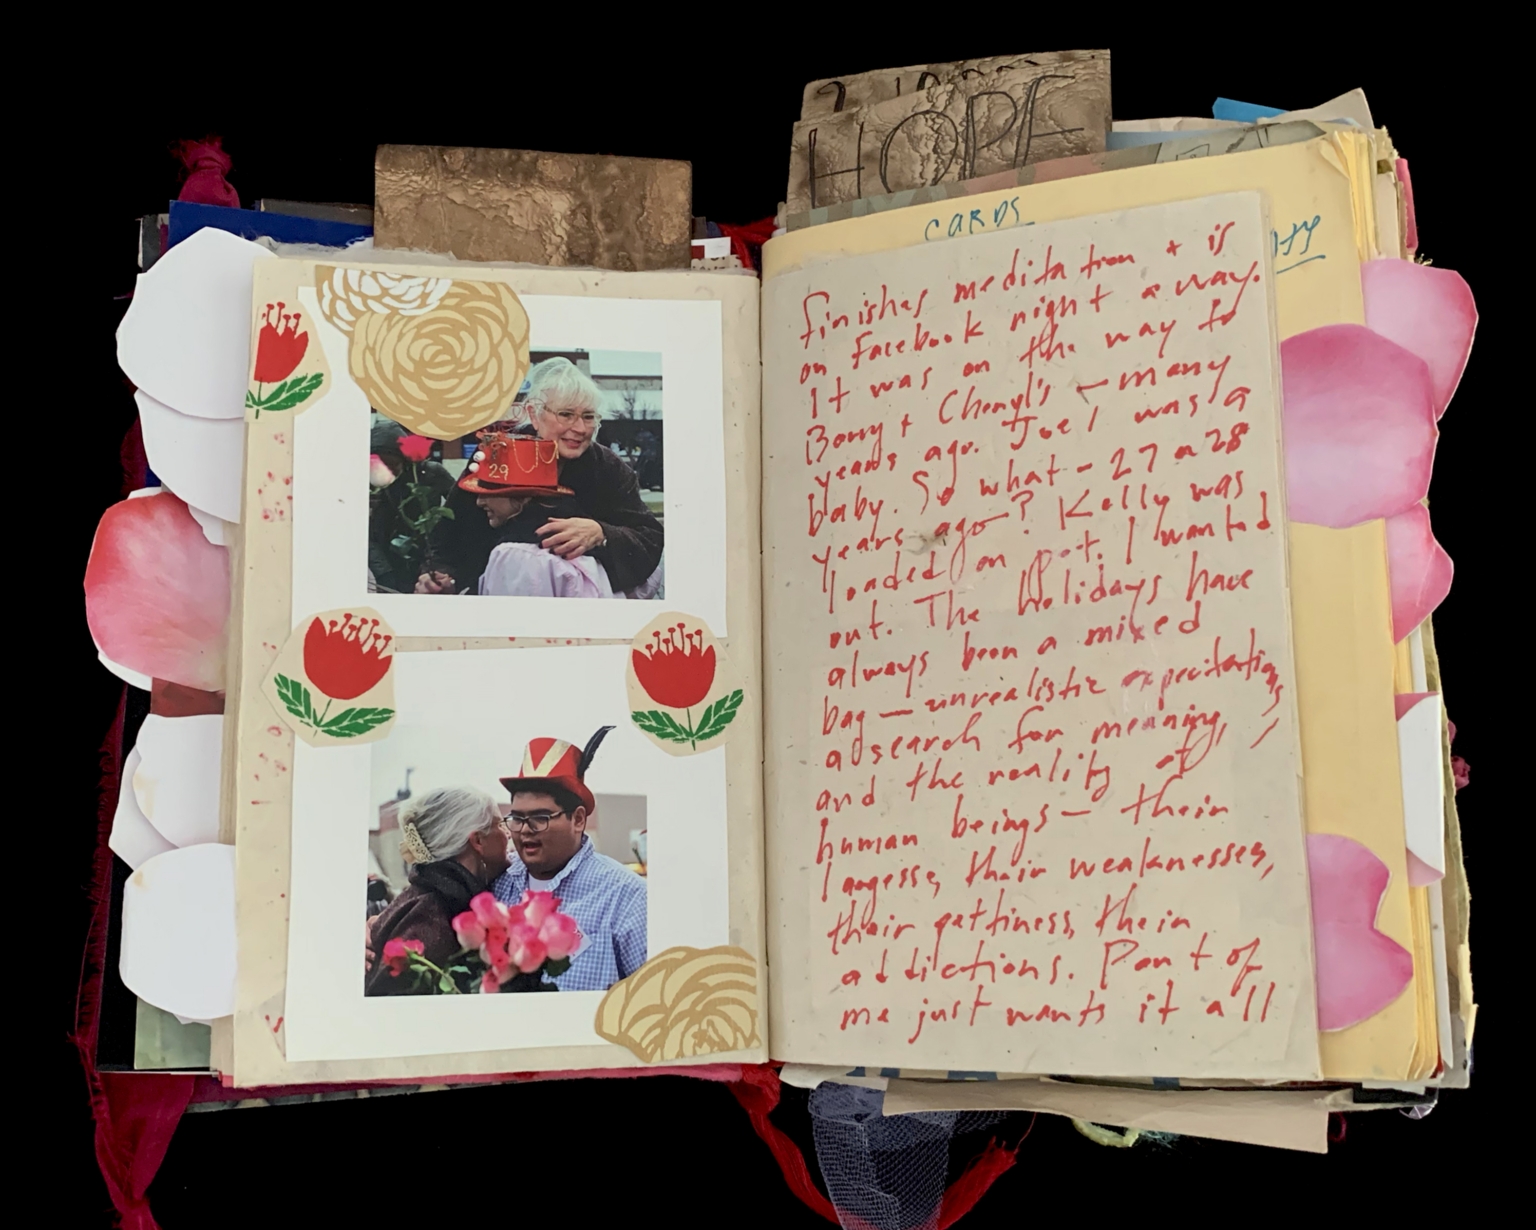 HOPE
CARDS
29
finishes meditation + is
on Facebook night + a way.
It was on the way to
Barry + Cheryl's — many
years ago. Joel was a
baby. So what - 27 or 28
years ago? Kelly was
loaded on pot. I wanted
out. The holidays have
always been a mixed
bag — unrealistic expectations,
a search for meaning,
and the reality of
human beings — their
largesse, their weaknesses,
their pettiness, their
addictions. Part of
me just wants it all